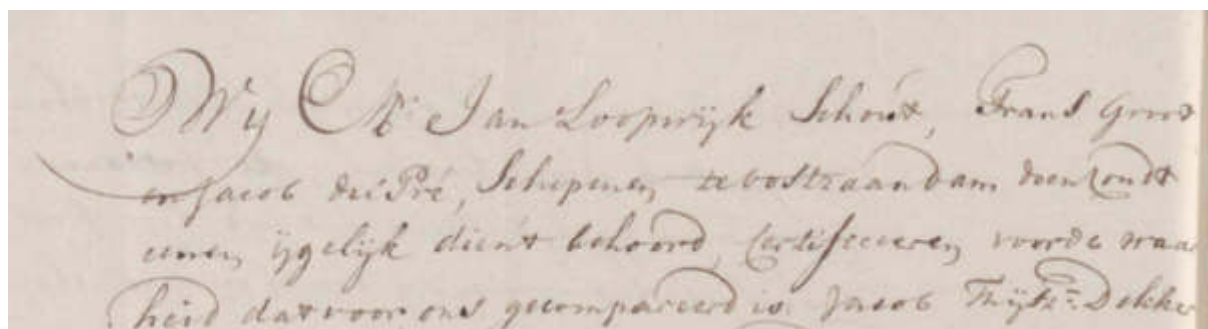 Wij Mr. Jan Loopwijk Schout, Frans Groot
en Jacob du Pré, Schepenen, te oostzaandam doen Condt
eenen ijgelijk dien't behoord, Certificeeren voor de waar
heid dat voor ons gecompareerd is Jacob Thijsz: Dekker